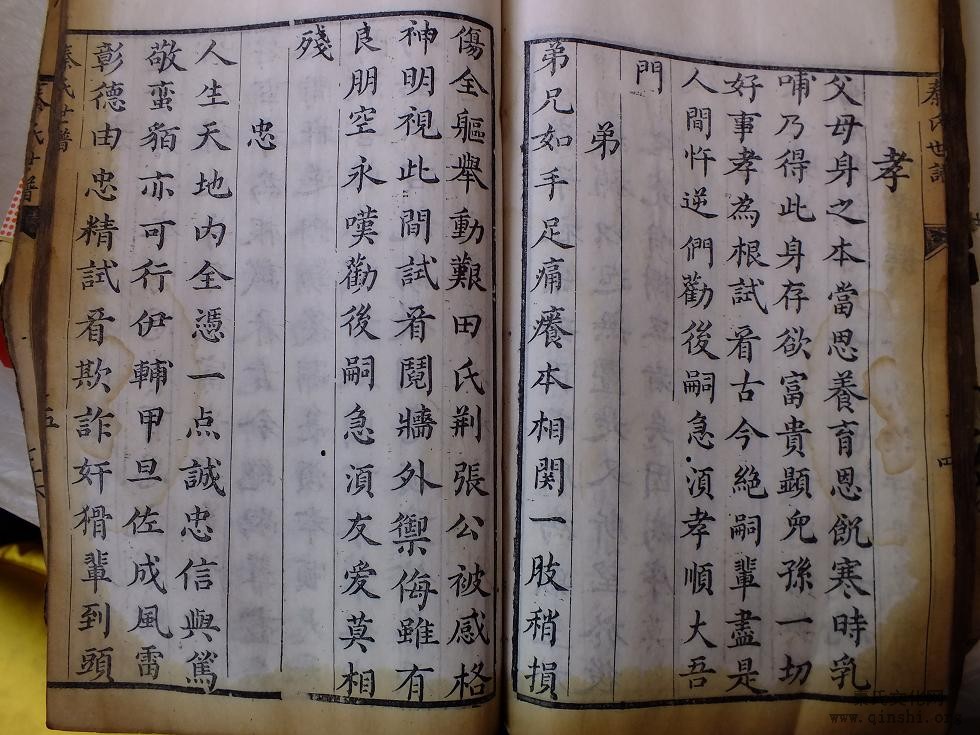 秦氏世譜
孝
父母身之本當思養育恩飢寒時乳
哺乃得此身存欲富貴顯兒孫一切
好事孝為根試看古今絶嗣輩盡是
人間忤逆們勸後嗣急湏孝順大吾
門
弟
弟兄如手足痛癢本相関一肢稍損
傷全軀舉動艱田氏荆張公被感格
神明視此間試看鬩牆外禦侮雖有
良朋空永嘆勸後嗣急湏友爱莫相
殘
忠
人生天地内全憑一点誠忠信與篤
敬蛮貊亦可行伊輔甲旦佐成風雷
彰德由忠精試看欺詐奸猾輩到頭
秦氏世譜
五
www.qinshi.org